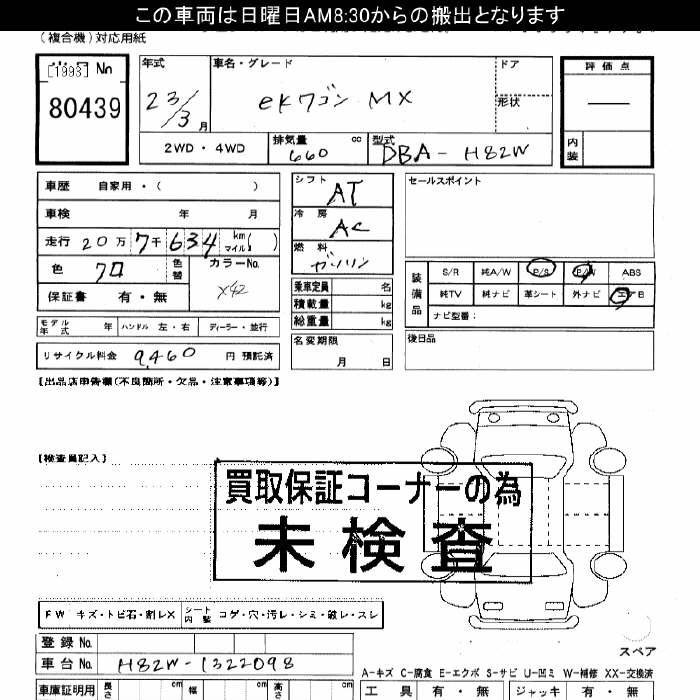 この車両は日曜日AM8:30からの搬出となります
（複合機）対応用紙
[1993] No
80439
年式 23/3 月
車名・グレード ekワゴン MX
ドア
形状
評価点
内装
2WD・4WD
排気量 660 cc
型式 DBA-H82W
車歴 自家用・( )
車検 年 月
走行 20万7千634 km マイル( )
色 クロ
色替
カラーNo. X42
保証書 有・無
モデル年式 年 ハンドル 左・右 ディーラー・並行
リサイクル料金 9,460 円 預託済
シフト AT
冷房 AC
燃料 ガソリン
乗車定員 名
積載量 kg
総重量 kg
名変期限
月 日
セールスポイント
装備品
S/R 純A/W P/S P/W ABS
純TV 純ナビ 革シート 外ナビ エアB
ナビ型番：
後日品
【出品店申告欄(不良箇所・欠品・注意事項等)】
【検査員記入】
買取保証コーナーの為
未検査
FW キズ・トビ石・割レX
シート内装 コゲ・穴・汚レ・シミ・破レ・スレ
登録No.
車台No. H82W-1322098
車庫証明用 長さ cm 幅 cm 高さ cm
スペア
A-キズ C-腐食 E-エクボ S-サビ U-凹ミ W-補修 XX-交換済
工具 有・無 ジャッキ 有・無